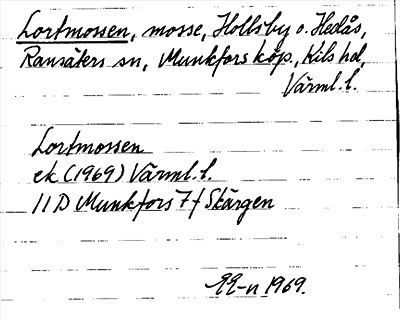 Lortmossen, mosse, Hollsby o. Hedås,
Ransäters sn, Munkfors köp., Kils hd,
Värml. l.
Lortmossen
ek (1969) Värml. l.
11 D Munkfors 7 f Skärgen
1969.